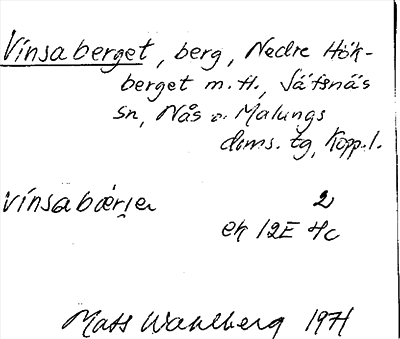 Vinsaberget, berg, Nedre Hök-
berget m.fl., Säfsnäs
sn, Nås o. Malungs
doms. tg, Kopp.l.
vinsabærjen 2
ek 12E Hc
Mats Wahlberg 1971